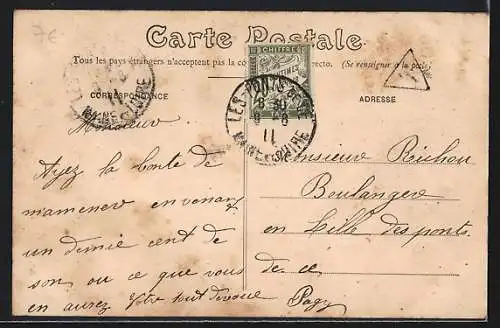 7€
Carte Postale
Tous les pays étrangers n'acceptent pas la correspondance au recto. (Se renseigner à la poste)
CORRESPONDANCE
ADRESSE
CHIFFRE
LES PONTS DE CÉ
8 30
8 8
11
MAINE ET LOIRE
Monsieur
Ayez la bonté de
m'amener en venant
un demie cent de
son ou ce que vous
en aurez Votre tout dévoué
Monsieur Richou
Boulanger
en l'ille des ponts
de ce
Pagy